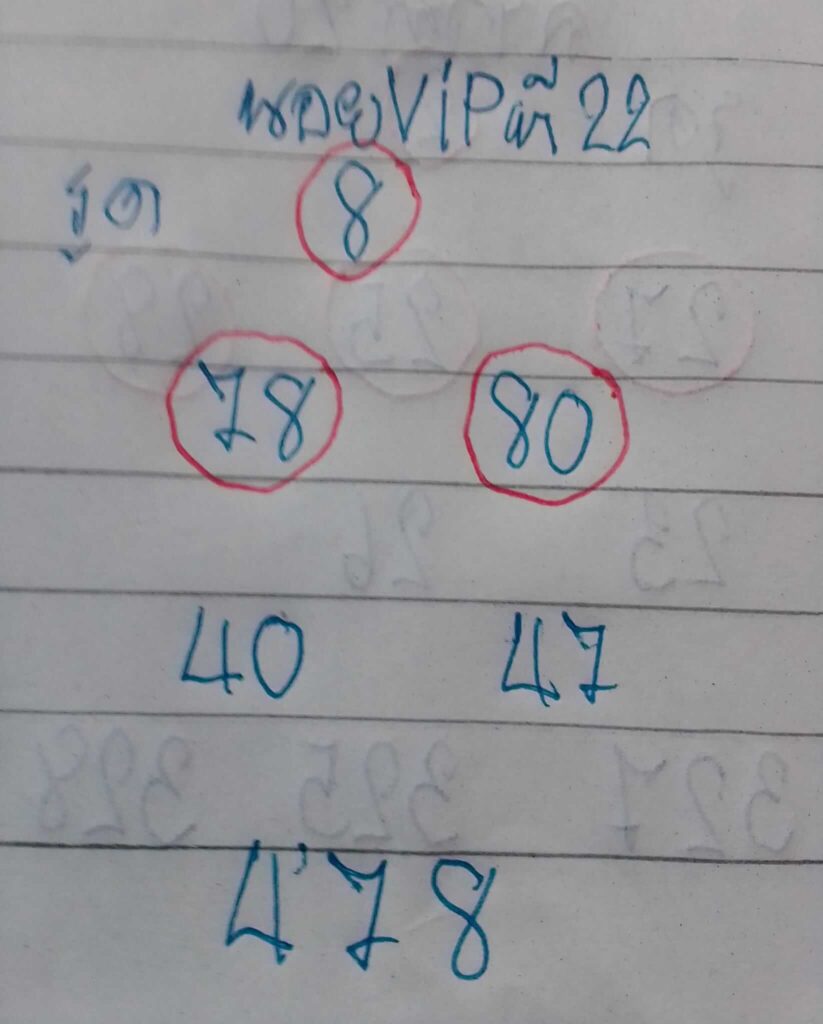 นอยViPที่ 22
รูด 8
78 80
40 47
478